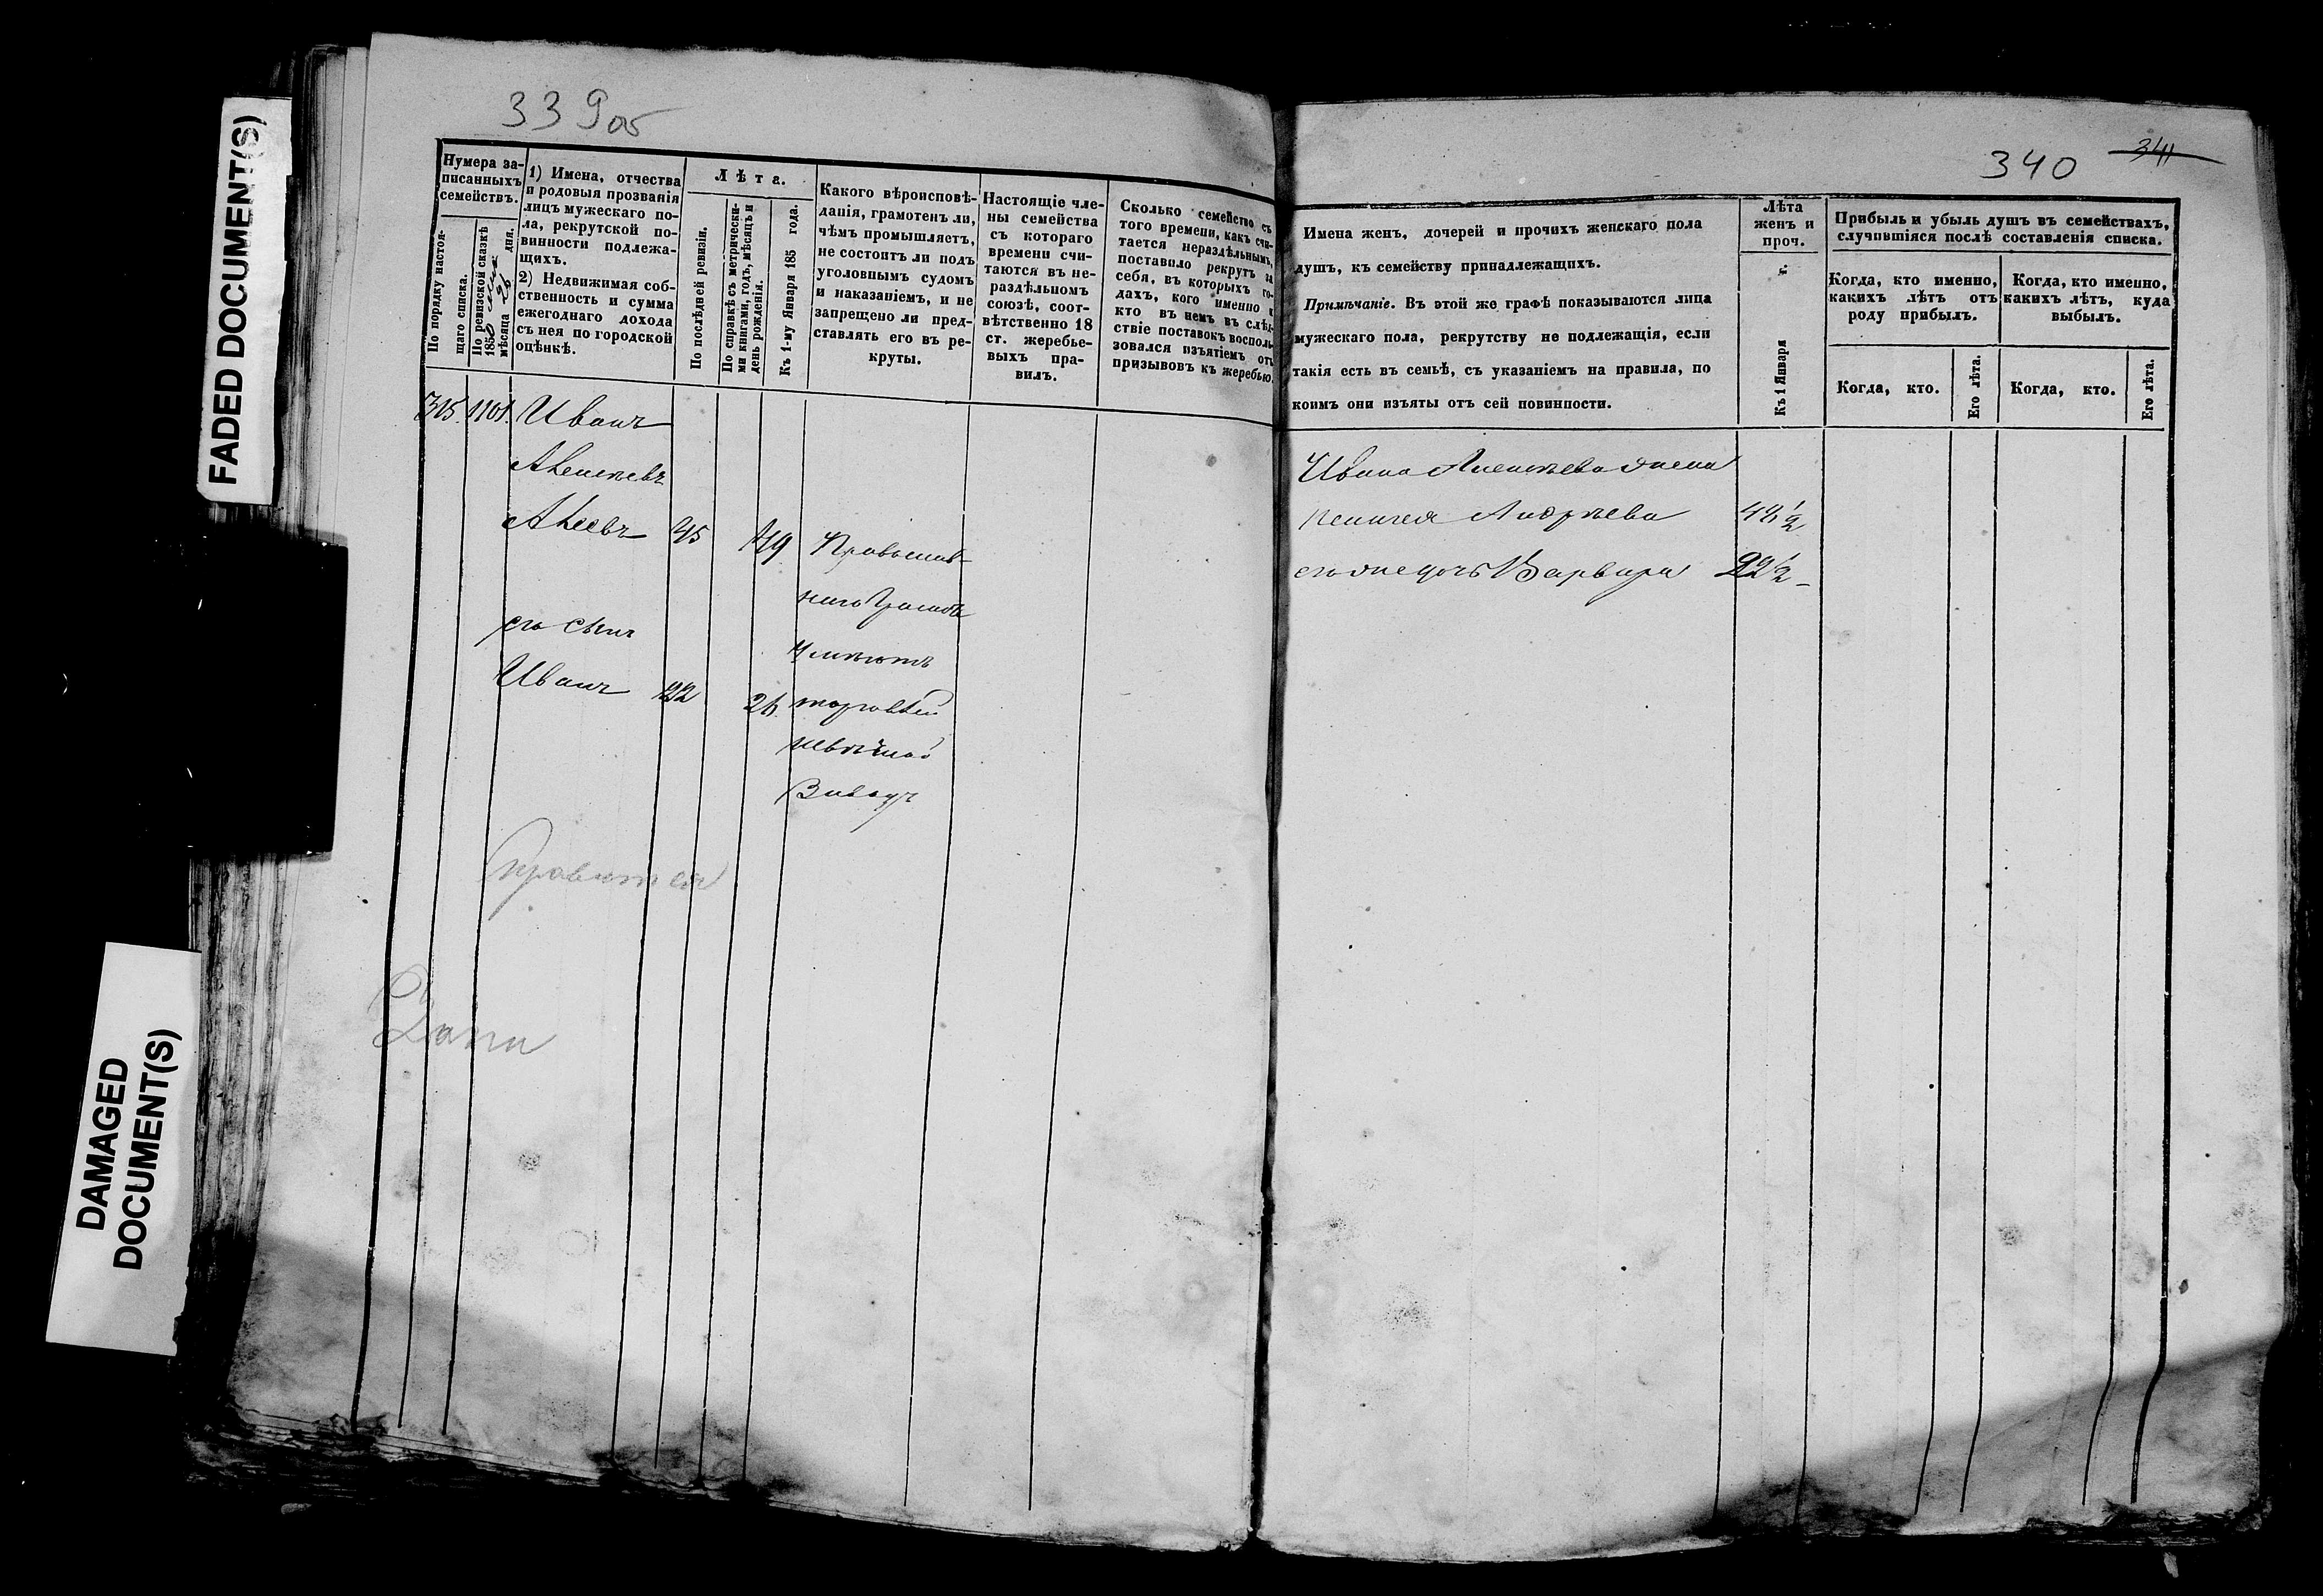 FADED DOCUMENT(S)
DAMAGED
DOCUMENT(S)
339об
Нумера за-
писанныхъ
семействъ.
По порядку настоя-
щаго списка.
По ревизской сказкѣ
1850
мѣсяца 26 дня.
1) Имена, отчества
и родовыя прозванія
лицъ мужескаго по-
ла, рекрутской по-
винности подлежа-
щихъ.
2) Недвижимая соб-
ственность и сумма
ежегоднаго дохода
съ нея по городской
оцѣнкѣ.
Лѣта.
По послѣдней ревизіи.
По справкѣ съ метрически-
ми книгами, годъ, мѣсяцъ и
день рожденія.
Къ 1-му Января 185 года.
Какого вѣроисповѣ-
данія, грамотенъ ли,
чѣмъ промышляетъ,
не состоитъ ли подъ
уголовнымъ судомъ
и наказаніемъ, и не
запрещено ли пред-
ставлять его въ ре-
круты.
Настоящіе чле-
ны семейства
съ котораго
времени счи-
таются въ не-
раздѣльномъ
союзѣ, соот-
вѣтственно 18
ст. жеребье-
выхъ пра-
вилъ.
Сколько семейство съ
того времени, какъ счи-
тается нераздѣльнымъ,
поставило рекрутъ за
себя, въ которыхъ го-
дахъ, кого именно и
кто въ немъ въ слѣд-
ствіе поставокъ восполь-
зовался изъятіемъ отъ
призывовъ къ жеребью.
315. 1101. Иванъ
Алексѣевъ
45 49 Православ-
наго
его сынъ
Иванъ 22 26 торговлей
340 341
Имена женъ, дочерей и прочихъ женскаго пола
душъ, къ семейству принадлежащихъ.
Примѣчаніе. Въ этой же графѣ показываются лица
мужескаго пола, рекрутству не подлежащія, если
такія есть въ семьѣ, съ указаніемъ на правила, по
коимъ они изъяты отъ сей повинности.
Лѣта
женъ и
проч.
Къ 1 Января г.
Прибыль и убыль душъ въ семействахъ,
случившіяся послѣ составленія списка.
Когда, кто именно,
какихъ лѣтъ отъ
роду прибылъ.
Когда, кто именно,
какихъ лѣтъ, куда
выбылъ.
Когда, кто.
Его лѣта.
Когда, кто.
Его лѣта.
Ивана Алексѣева жена
Андрѣева 48½
его же дочь Варвара 22½